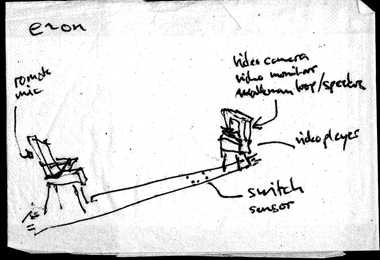 eron
remote
mic
video camera
video monitor
walkman loop/speakers
video player
switch
sensor